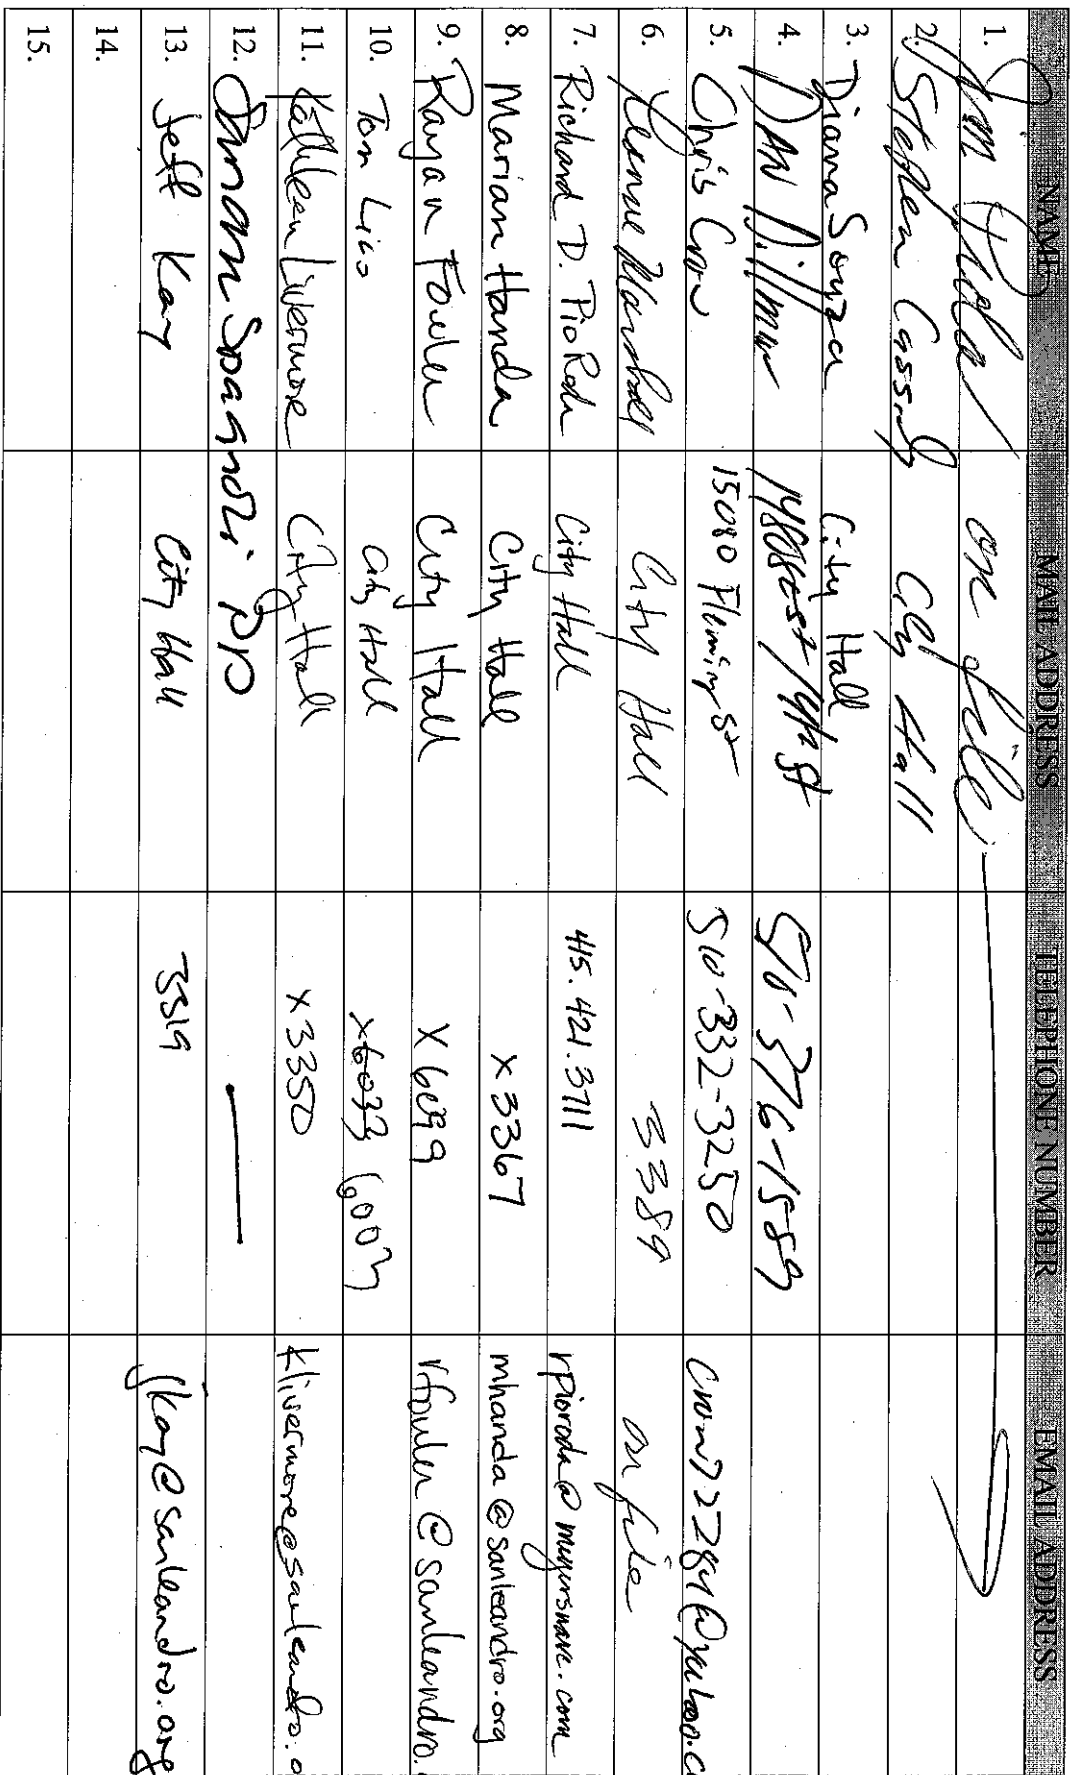 NAME MAIL ADDRESS TELEPHONE NUMBER EMAIL ADDRESS
1. Jim on file
2. Stephen Cassidy City Hall
3. Diana Souza City Hall
4. DAN Dillman 14808 14th St 510-376-1589
5. Chris Crow 15080 Fleming St 510-332-3250 crow72284@yahoo.c
6. Marshall City Hall 3389 on file
7. Richard D. Pio Roda City Hall 415.421.3711 rpioroda@meyersnave.com
8. Marian Handa City Hall x3367 mhanda@sanleandro.org
9. Rayan Fowler City Hall X6099 rfowler@sanleandro.
10. Tom Liao City Hall x6033 6003
11. Kathleen Livermore City Hall x3350 Klivermore@sanleandro.o
12. Spagnoli PD —
13. Jeff Kay City Hall 3319 jkay@sanleandro.org
14.
15.